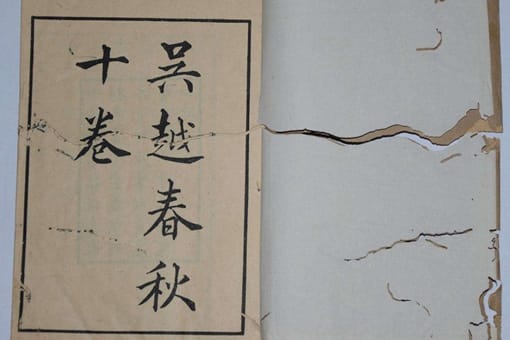 吴越春秋
十卷